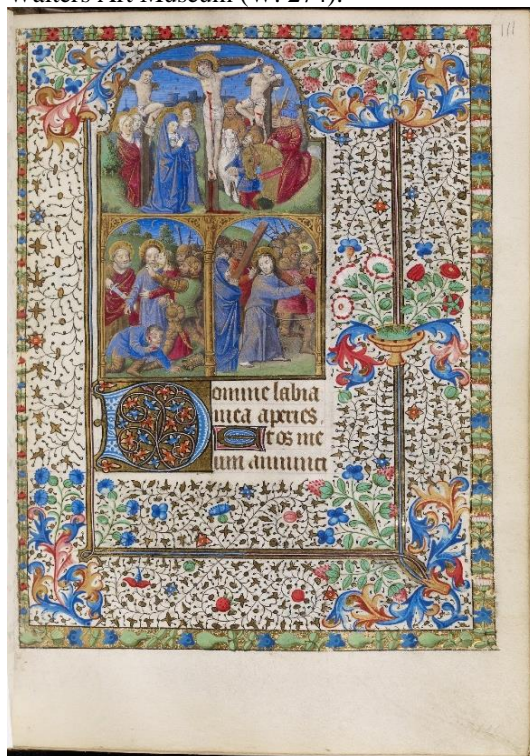 Walters Art Museum (W. 274).
Domine labia
mea aperies.
Et os me
um annunci